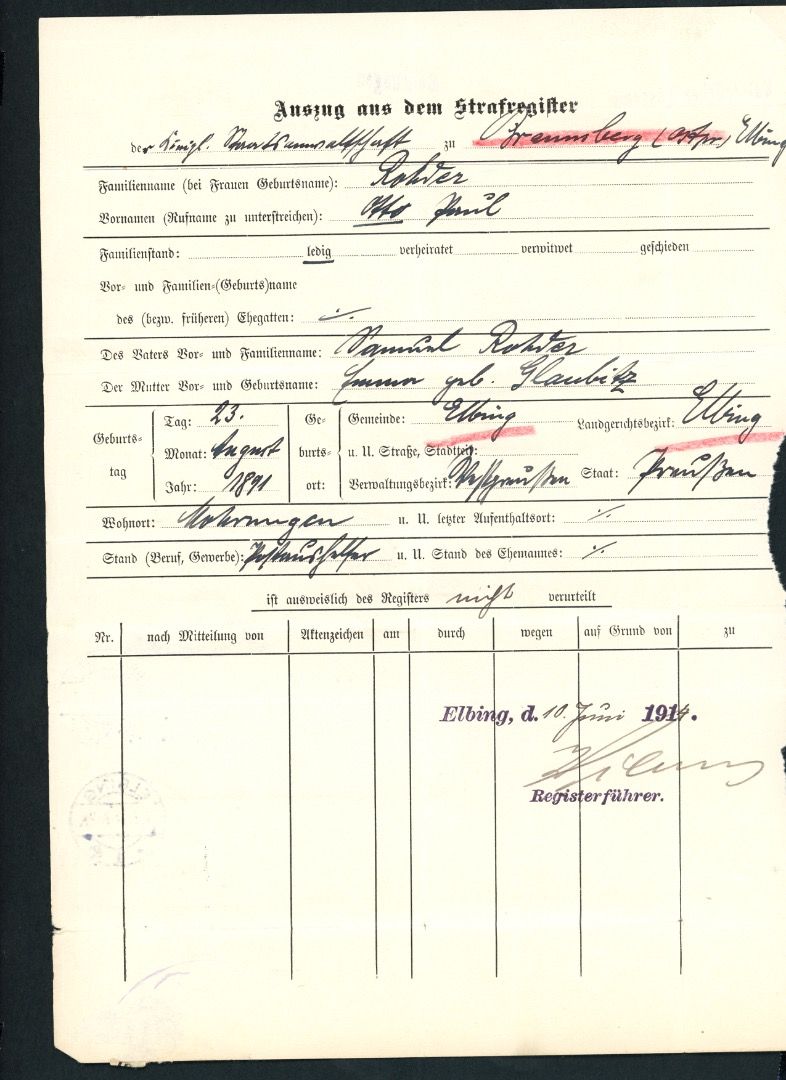 Auszug aus dem Strafregister
der Königl. Staatsanwaltschaft zu Braunsberg (Ostpr.) Elbing
Familienname (bei Frauen Geburtsname): Rohder
Vornamen (Rufname zu unterstreichen): Otto Paul
Familienstand: ledig verheiratet verwitwet geschieden
Vor- und Familien-(Geburts)name
des (bezw. früheren) Ehegatten: ./.
Des Vaters Vor- und Familienname: Samuel Rohder
Der Mutter Vor- und Geburtsname: Emma geb. Glaubitz
Geburts-
tag
Tag: 23.
Monat: August
Jahr: 1891
Ge-
burts-
ort:
Gemeinde: Elbing Landgerichtsbezirk: Elbing
u. U. Straße, Stadtteil:
Verwaltungsbezirk: Westpreußen Staat: Preußen
Wohnort: Mohrungen u. U. letzter Aufenthaltsort: ./.
Stand (Beruf, Gewerbe): Postaushelfer u. U. Stand des Ehemannes: ./.
ist ausweislich des Registers nicht verurteilt
Nr. nach Mitteilung von Aktenzeichen am durch wegen auf Grund von zu
Elbing, d. 10. Juni 1914.
Registerführer.